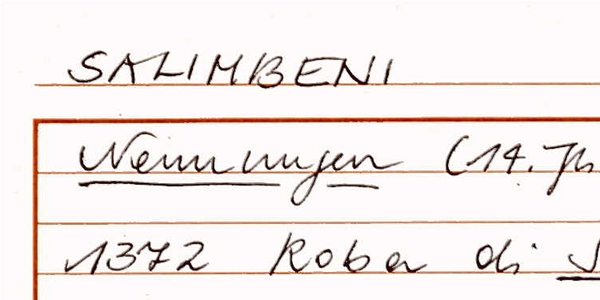 SALIMBENI
Nennungen (14. Jh
1372 Roba di S